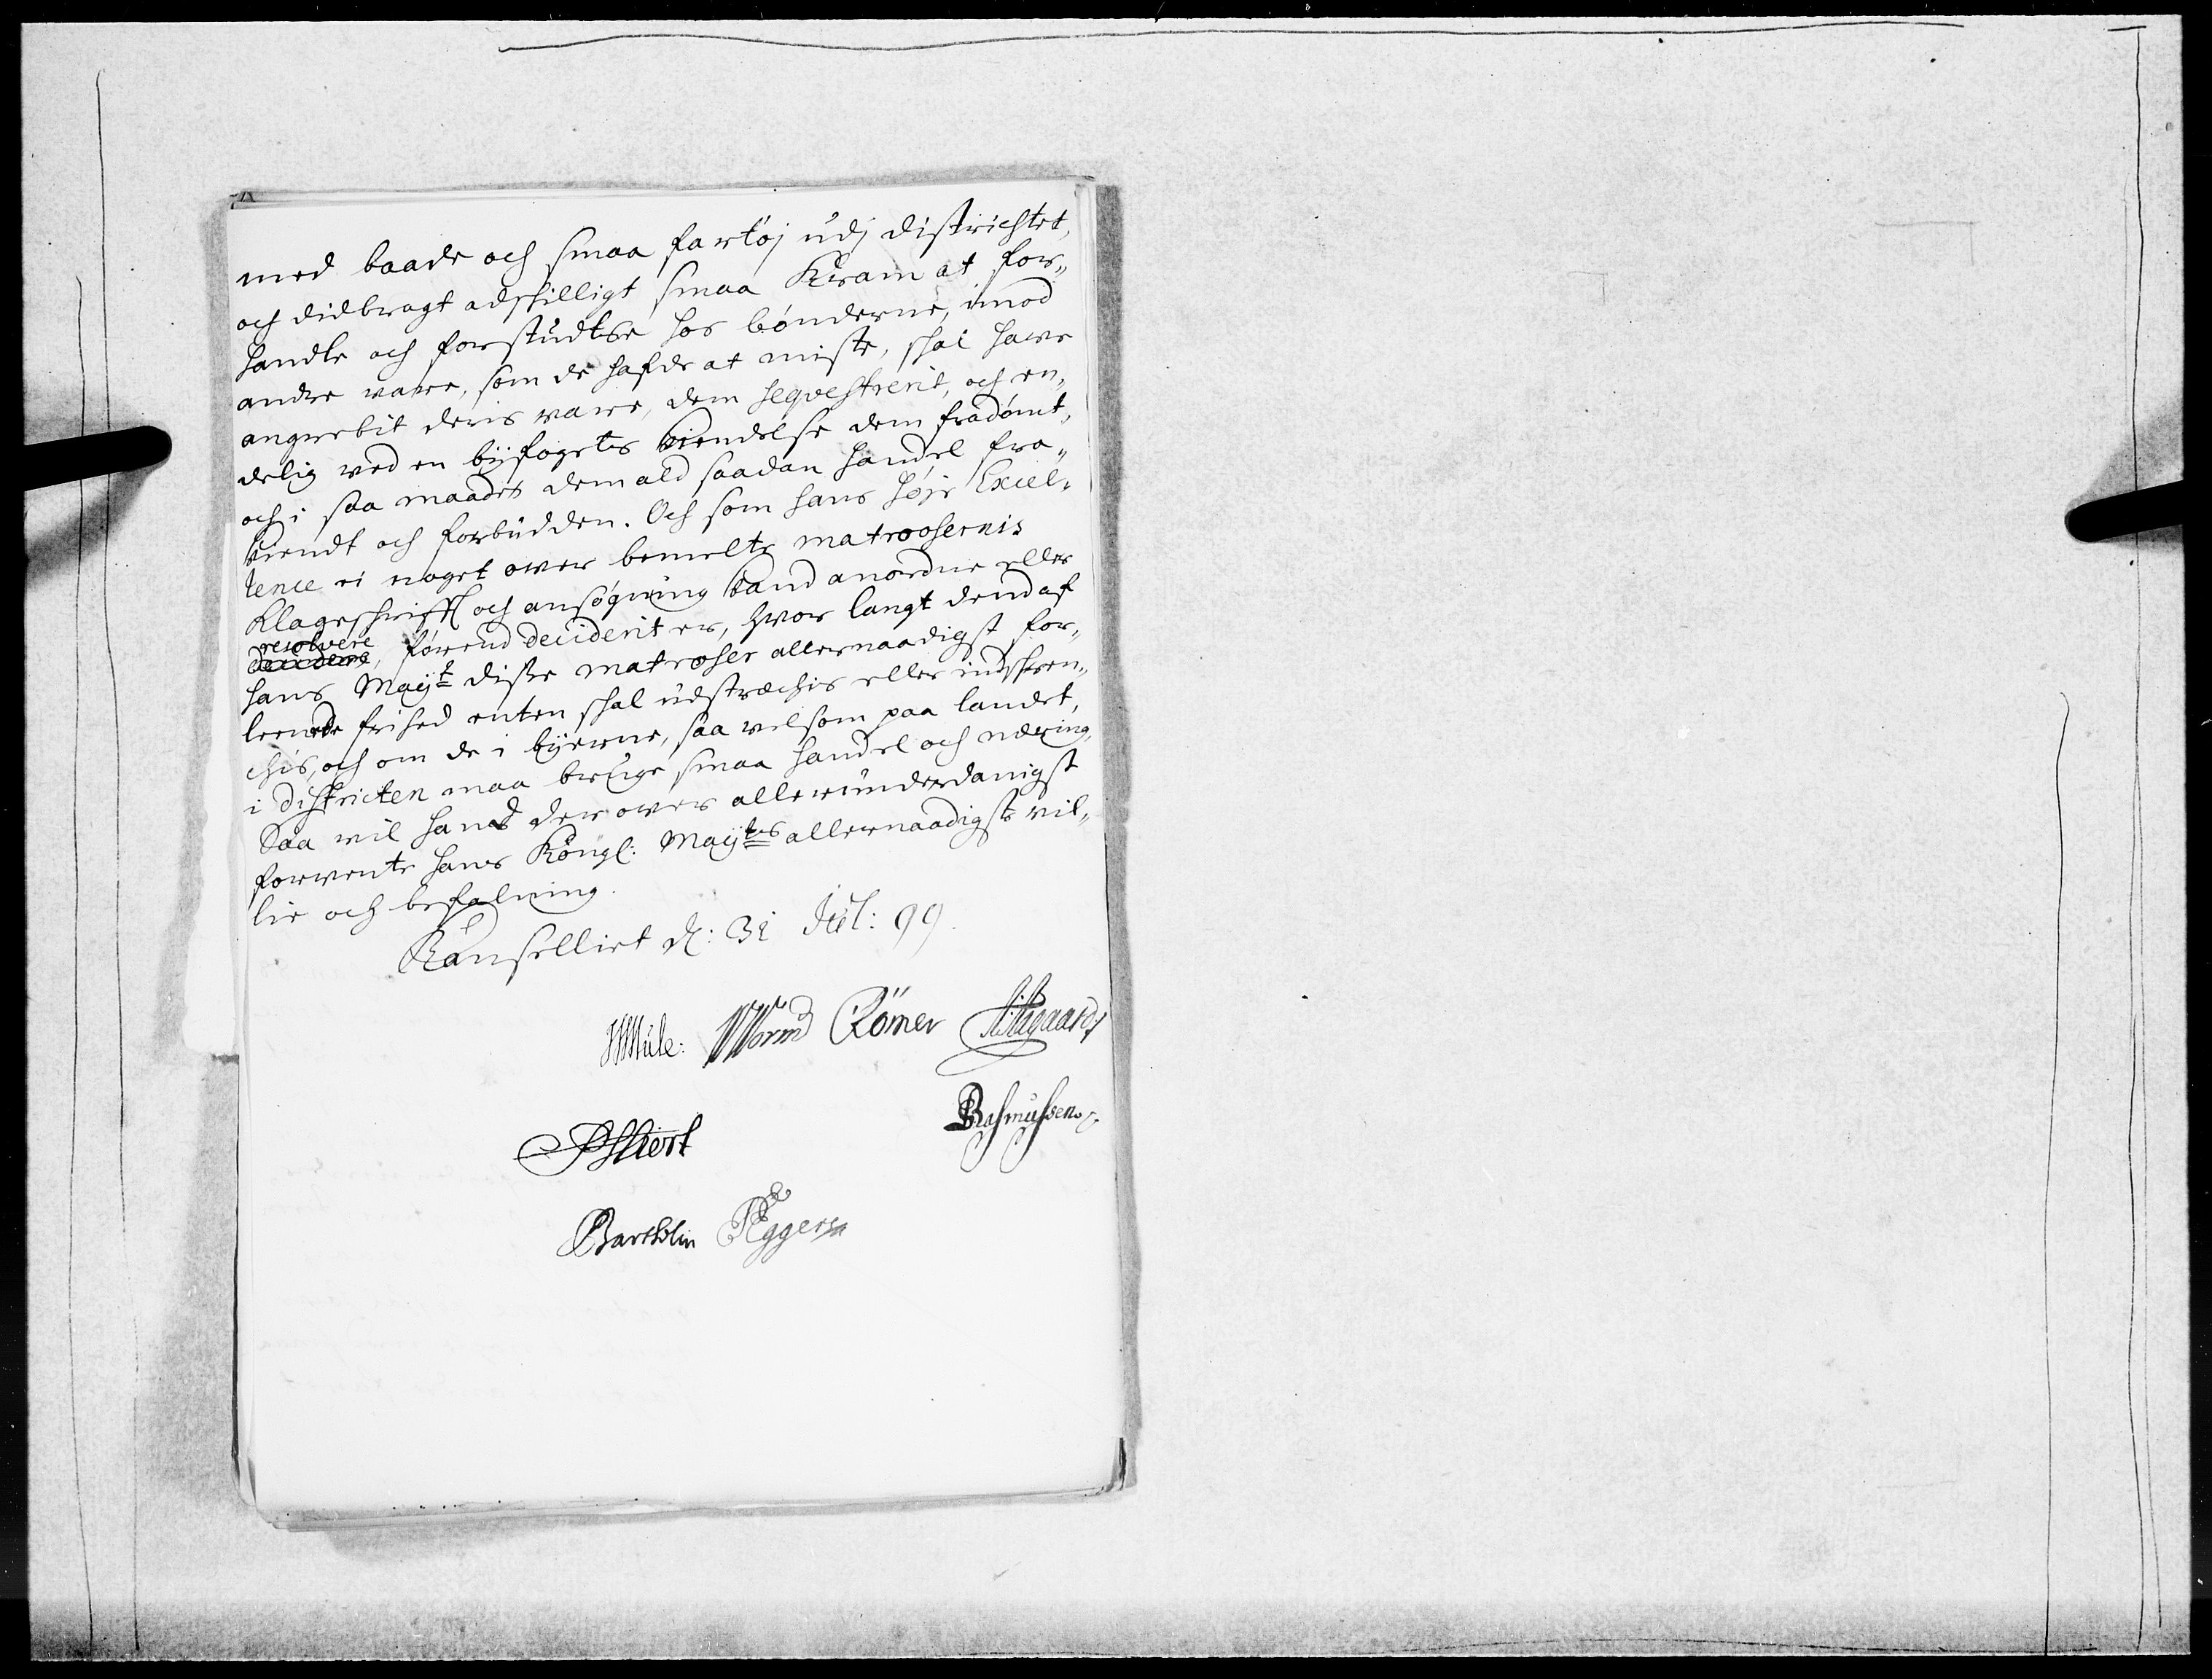 med baade och smaa fartøj udj districhtet,
och didbragt adskilligt smaa Kram at for„
handle och forstudtse hos bønderne, imod
andre vare, som de hafde at miste, skal have
angrebit deris vare, dem seqvestrerit, och en„
delig ved en byefogetes kiendelse dem fradømt,
och i saa maader dem ald saadan handel fra„
kiendt och forbudden. Och som hans høje Excel„
lence ei noget over bemelte matroosernis
Klageskrifft och ansøgning kand anordne eller
resolvere
decidere, førend deciderit er, hvor langt dend af
hans Mayt disse matroser allernaadigst for„
leente frihed enten skal udstrechis eller indskren„
chis, och om de i byerne, saa velsom paa landet,
i districten maa bruge smaa handel och næring,
Saa vil hand der over allerunderdanigst
forvente hans Kongl: Maytes allernaadigste vil„
lie och befalning.
Kanselliet d: 31 Jul: 99.
HMule: WWorm Römer Aagaard
PHiort Rasmussen
Bartholin PEggers